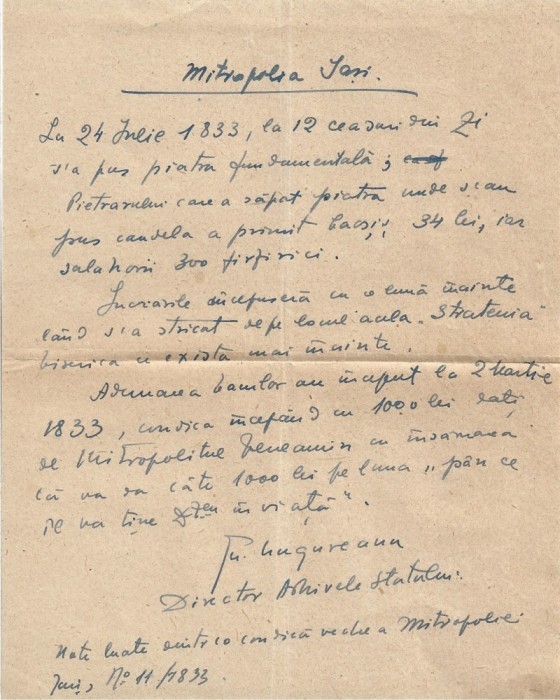 Mitropolia Iași.
La 24 Iulie 1833, la 12 ceasuri din zi
s'a pus piatra fundamentală;
Pietrarului care a săpat piatra unde s'au
pus candela a primit bacșiș 34 lei, iar
salahorii 300 firfirici.
Lucrările începuseră cu o lună înainte
când s'a stricat de pe locul acela „Stratenia"
biserica ce exista mai înainte.
Adunarea banilor au început la 2 Martie
1833, condica începând cu 1000 lei dați
de Mitropolitul Veneamin cu însămnarea
că va da câte 1000 lei pe luna „pân ce
îl va ține Dzeu în viață".
Gh. Ungureanu
Director Arhivele Statului.
Note luate dintr'o condică veche a Mitropoliei
Iași, No 11/1833.